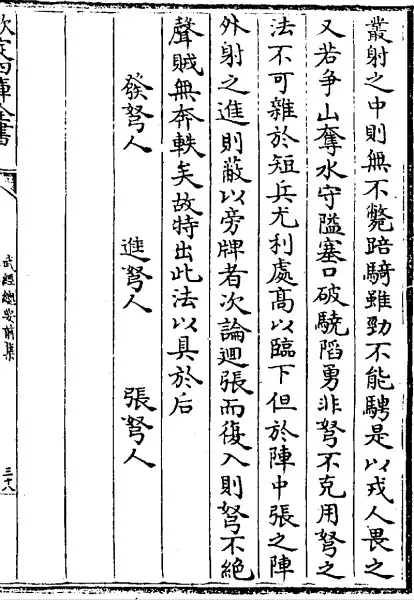 叢射之中則無不斃踣騎雖勁不能騁是以戎人畏之
又若爭山奪水守隘塞口破驍陷勇非弩不克用弩之
法不可雜於短兵尤利處髙以臨下但於陣中張之陣
外射之進則蔽以旁牌者次論廻張而復入則弩不絶
聲賊無奔軼矣故特出此法以具於后
發弩人　進弩人　張弩人
欽定四庫全書
武經總要前集
三十八